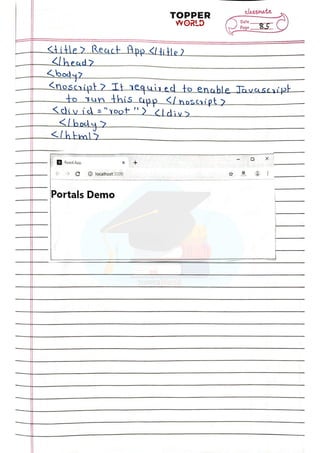 TOPPER
WORLD
classmate
Date
Page 85
<title> React App </title>
</head>
<body>
<noscript> It required to enable Javascript
to run this app </noscript>
<div id = "root"> </div>
</body>
</html>
React App
localhost:
Portals Demo